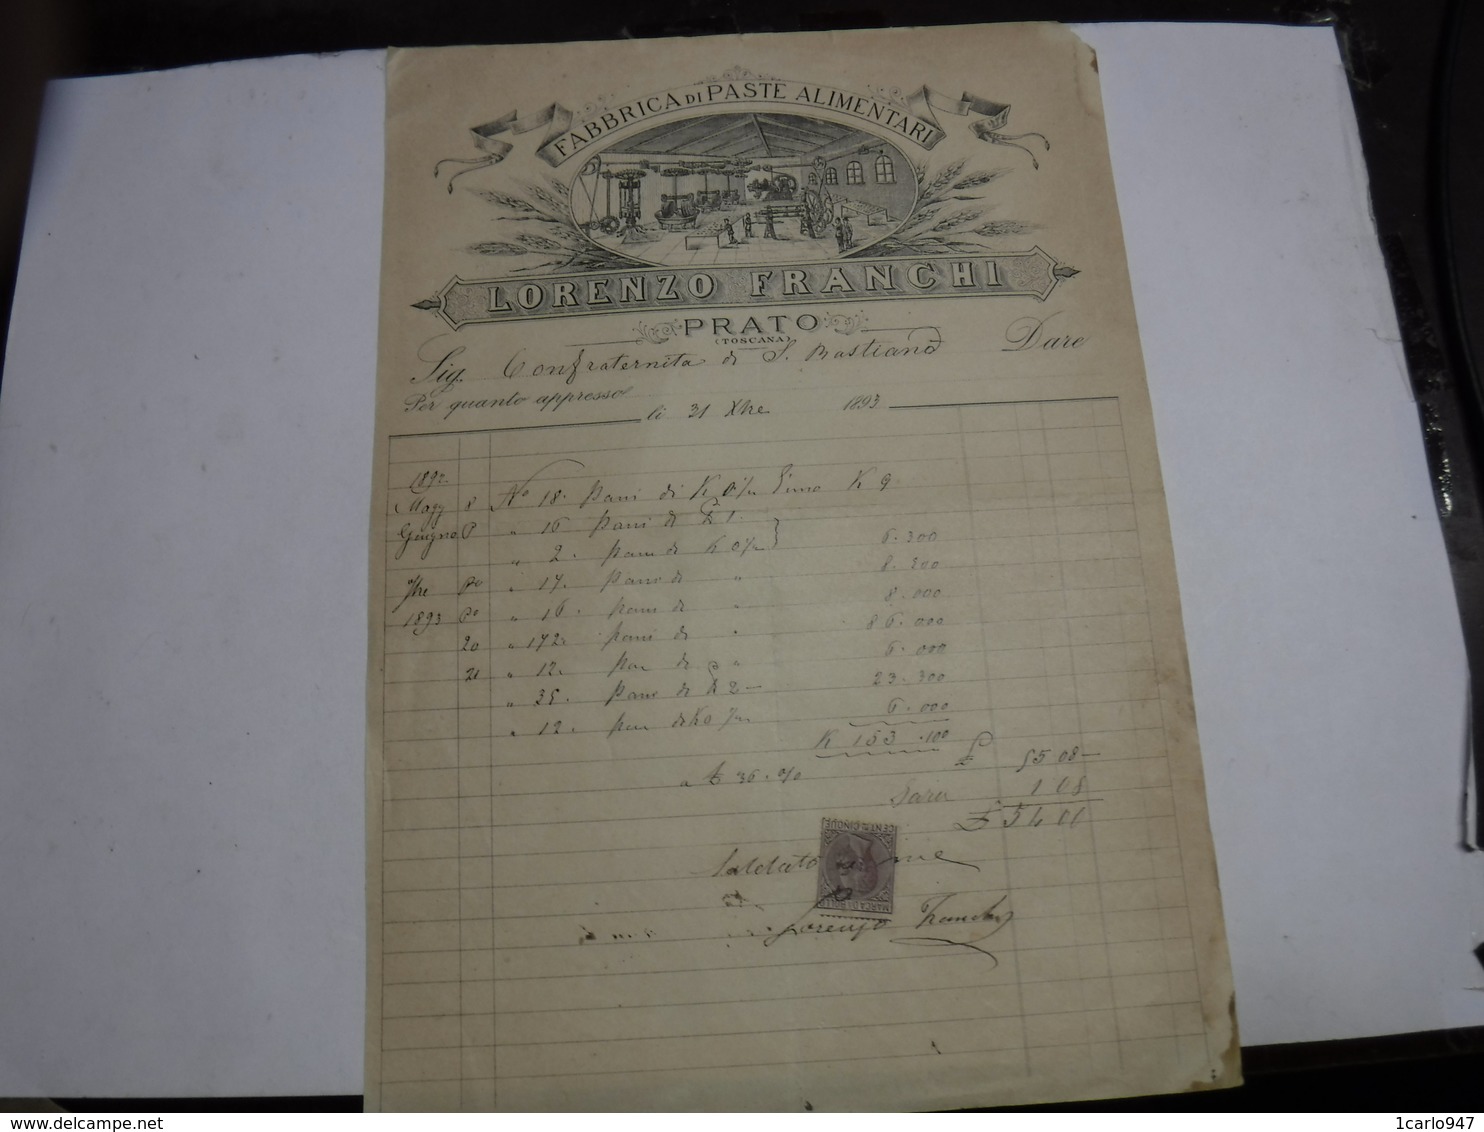 FABBRICA DI PASTE ALIMENTARI
LORENZO FRANCHI
PRATO
(TOSCANA)
Sig. Confraternita di S. Bastiano Dare
Per quanto appresso
li 31 Xbre 1893
1892
Magg 8 No 18. pani di K K 9
Giugno " 16 pani di
" 2. pani di K 6.300
" 17. pani di " 8.500
1893 " 16. pani di " 8.000
20 " 172. pani di " 86.000
21 " 12. pani di " 6.000
" 35. pani di 2 23.300
" 12. pani di 6.000
K 153.100
a £ 36. % £ 55 08
1 08
£ 54 00
Saldato
Lorenzo Franchi
CENT. MI CINQUE
MARCA DA BOLLO
delcampe.net
1carlo947